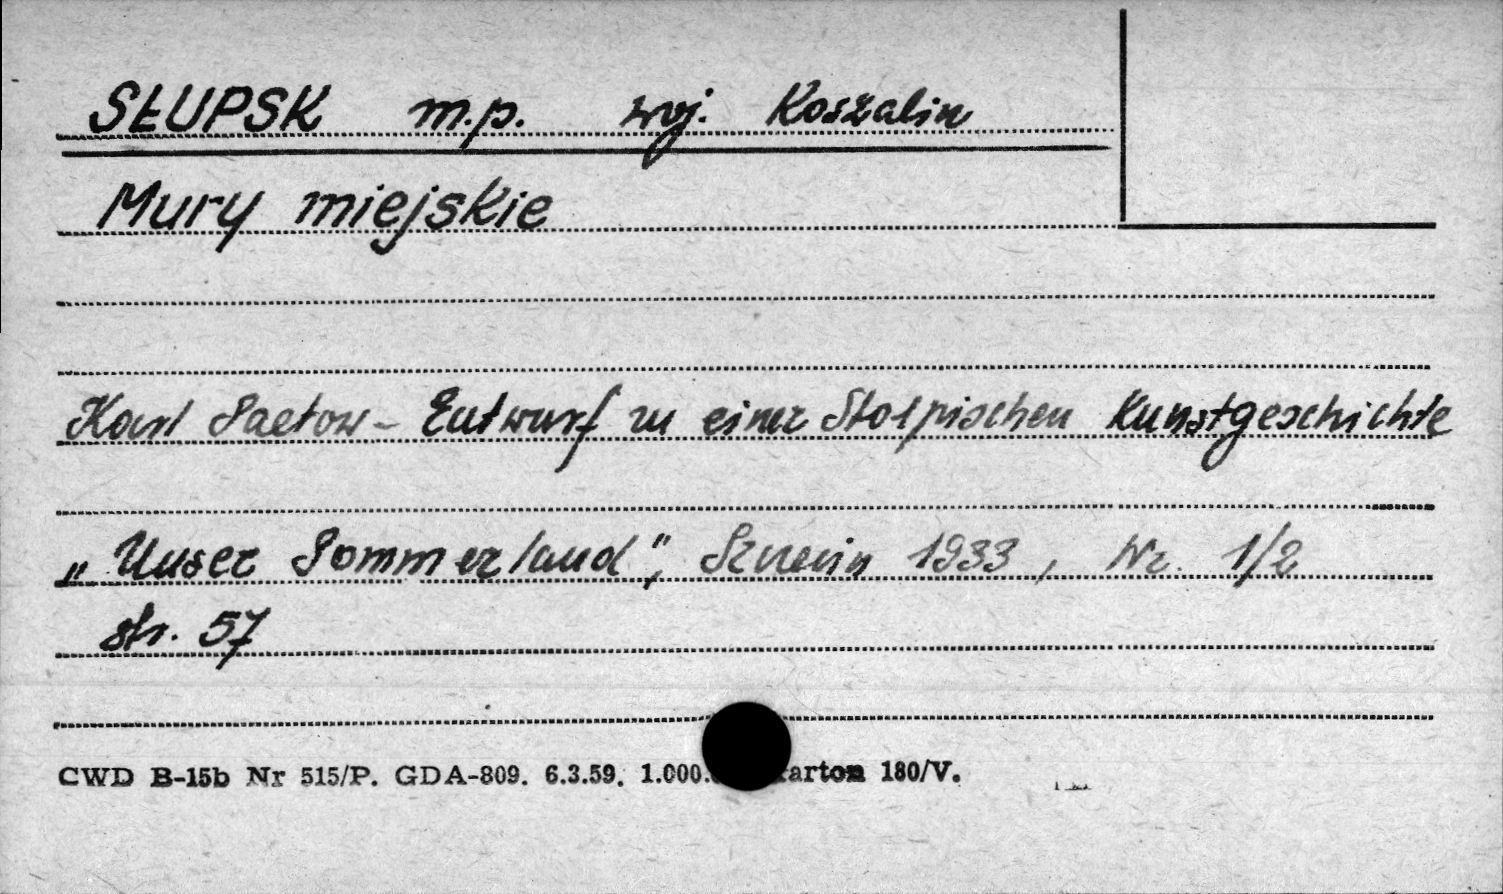 SŁUPSK m.p. woj. Koszalin
Mury miejskie
Karl Paetow - Entwurf zu einer Stolpischen Kunstgeschichte
„Unser Pommerland", Szczecin 1933, Nr. 1/2
str. 57
CWD B-15b Nr 515/P. GDA-809. 6.3.59. 1.000. karton 180/V.